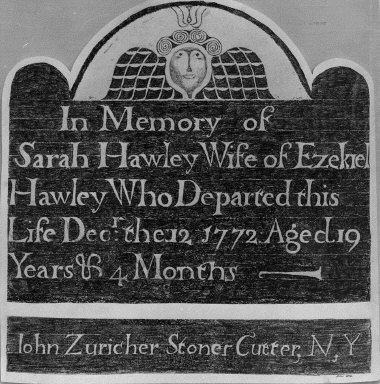 In Memory of
Sarah Hawley Wife of Ezekiel
Hawley Who Departed this
Life Decr. the 12 1772 Aged 19
Years & 4 Months
Iohn Zuricher Stoner Cutter, N,Y